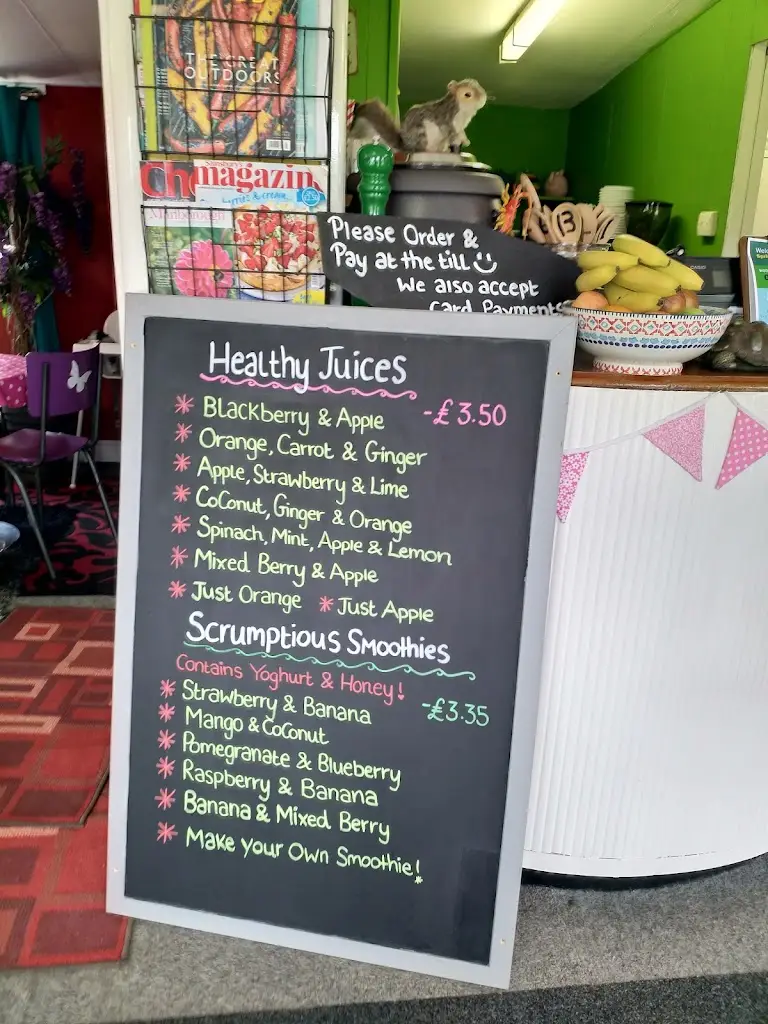 THE GREAT
OUTDOORS
Sainsbury's
magazin
Marlborough
Please Order &
Pay at the till
We also accept
Card Payments
B
Healthy Juices
* Blackberry & Apple -£3.50
* Orange, Carrot & Ginger
* Apple, Strawberry & Lime
* Coconut, Ginger & Orange
* Spinach, Mint, Apple & Lemon
* Mixed Berry & Apple
* Just Orange * Just Apple
Scrumptious Smoothies
Contains Yoghurt & Honey!
* Strawberry & Banana -£3.35
* Mango & Coconut
* Pomegranate & Blueberry
* Raspberry & Banana
* Banana & Mixed Berry
* Make your Own Smoothie!